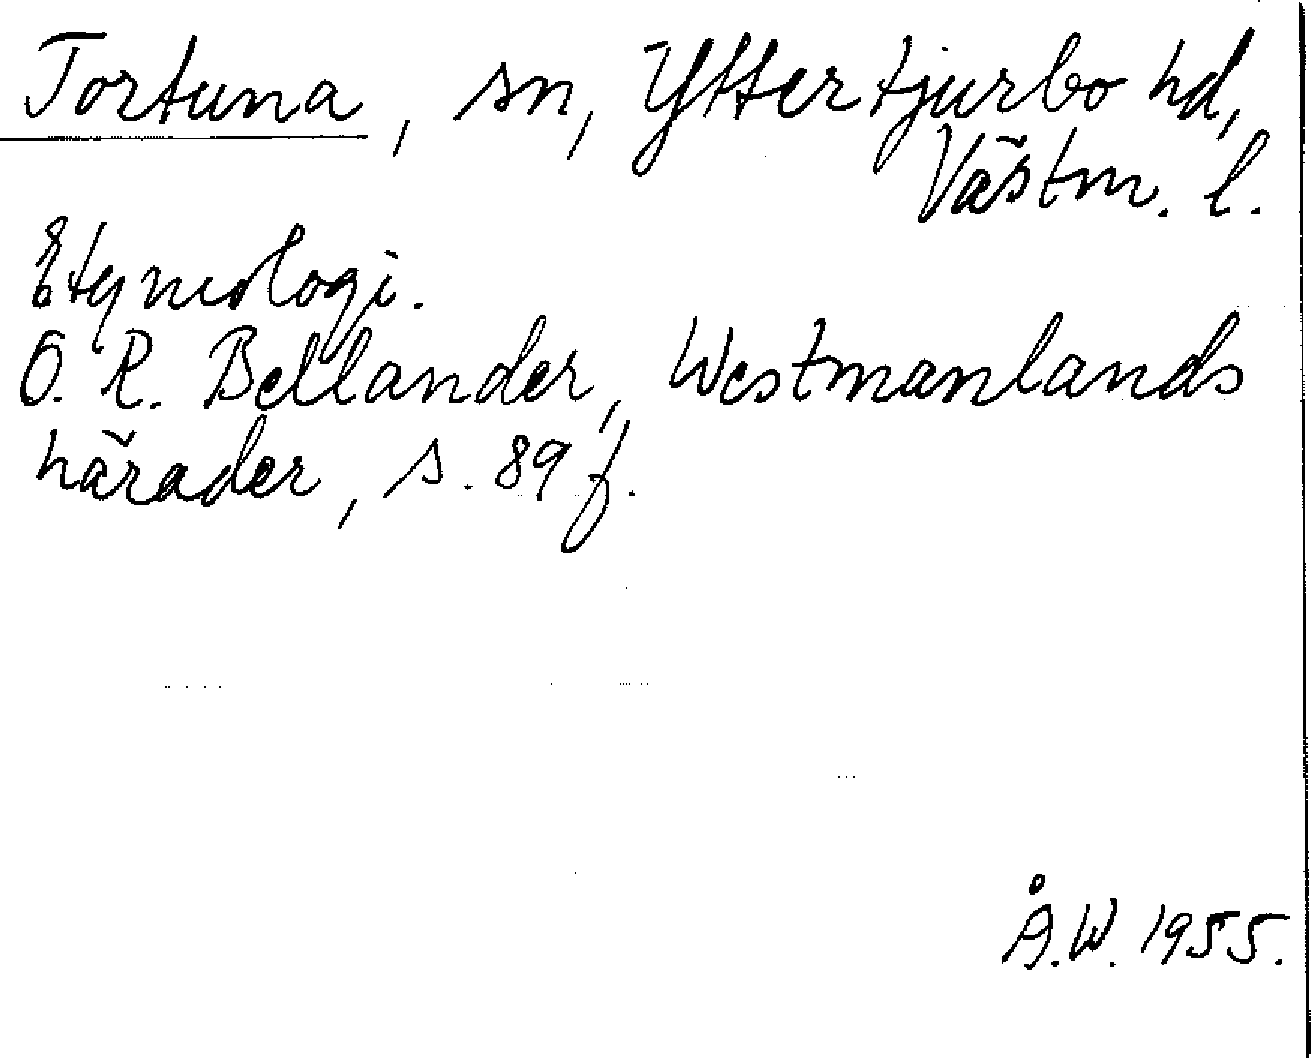 Tortuna, sn, Yttertjurbo hd,
Västm. l.
Etymologi.
O. R. Bellander, Westmanlands
härader, s. 89 f.
Å.W. 1955.